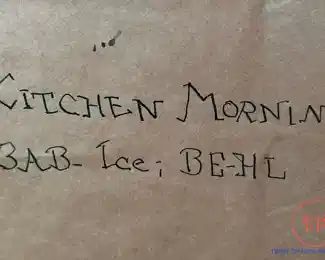 KITCHEN MORNIN
BAB- Ice; BE-HL